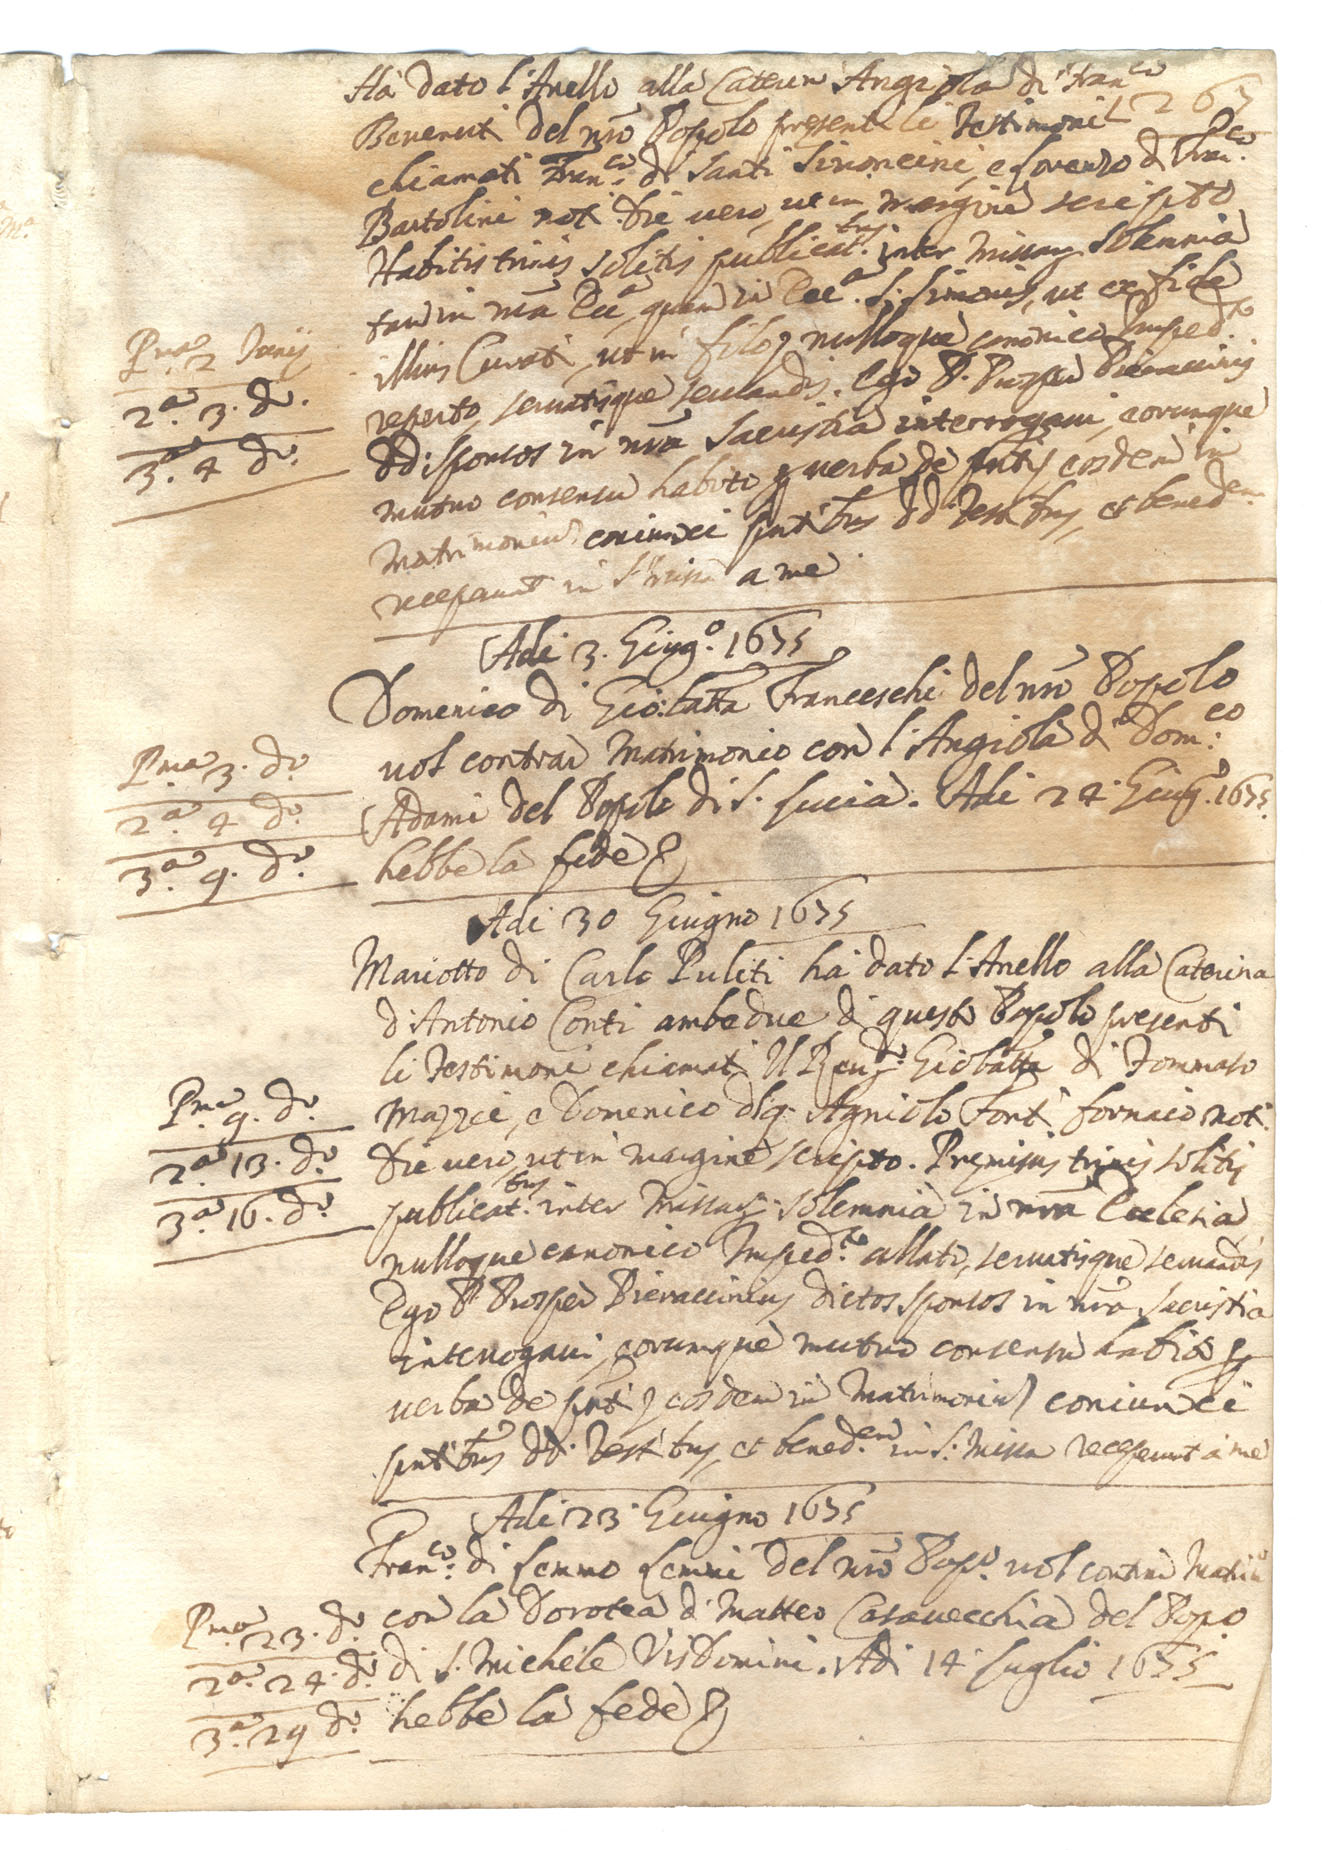 265
Ha dato l'Anello alla Caterin Angiola di Fran.co
Benenut del nro Popolo present li Testimoni
chiamati Fran.co di Santi Simoncini, e Lorenzo di Fran.co
Bartolini not. Die vero, ut in margine scripto
Habitis trinis solitis publicat.bus inter Missar. solemnia
tam in nra Ecc.a, quam in Ecc.a S. Simonis, ut ex fide
illius Curati, ut in filo, nulloque canonico Imped.to
Pma 2 Junij
reperto, servatisque servandis. Ego P. Prosper Pieraccinius
2.a 3. do.
dd. sponsos in nra Sacristia interrogavi, eorumque
3.a 4 do.
mutuo consensu habito p verba de pnti, eosdem in
Matrimoniu coniunxi pntibus dd. Testibus, et bened.em
receperunt in S. Missa a me
Adi 3. Giug.o 1655
Domenico di Gio:batta Franceschi del nro Popolo
vol contrar Matrimonio con l'Angiola di Dom.co
Pma 3. do.
Adami del Popolo di S. Lucia. Adi 24 Giug.o 1655
2.a 4 do.
hebbe la fede
3.a 9. do.
Adi 30 Giugno 1655
Mariotto di Carlo Puliti ha dato l'Anello alla Caterina
d'Antonio Conti ambedue di questo Popolo presenti
li Testimoni chiamati Il Reu.do Giobatta di Tommaso
Pma 9. do.
Mazzei, e Domenico d q. Agniolo Fonti fornaio not.
2.a 13. do.
Die vero, ut in margine scripto. Premissis trinis solitis
3.a 16. do.
publicat.bus inter Missar. solemnia in nra Ecclesia
nulloque canonico Imped.to allato, servatisque servandis
Ego P. Prosper Pieraccinius dictos sponsos in nra Sacristia
interrogavi, eorumque mutuo consensu habito p
verba de pnti, eosdem in Matrimoniu coniunxi
pntibus dd. Testibus, et bened.em in S. Missa receperunt a me
Adi 23 Giugno 1655
Fran.co di Lemmo Lemmi del nro Pop.o vol contrar Matri.o
Pma 23. do.
con la Dorotea di Matteo Casavecchia del Popo
2.a 24. do.
di S. Michele Visdomini. Adi 14 Luglio 1655
3.a 29 do.
hebbe la fede